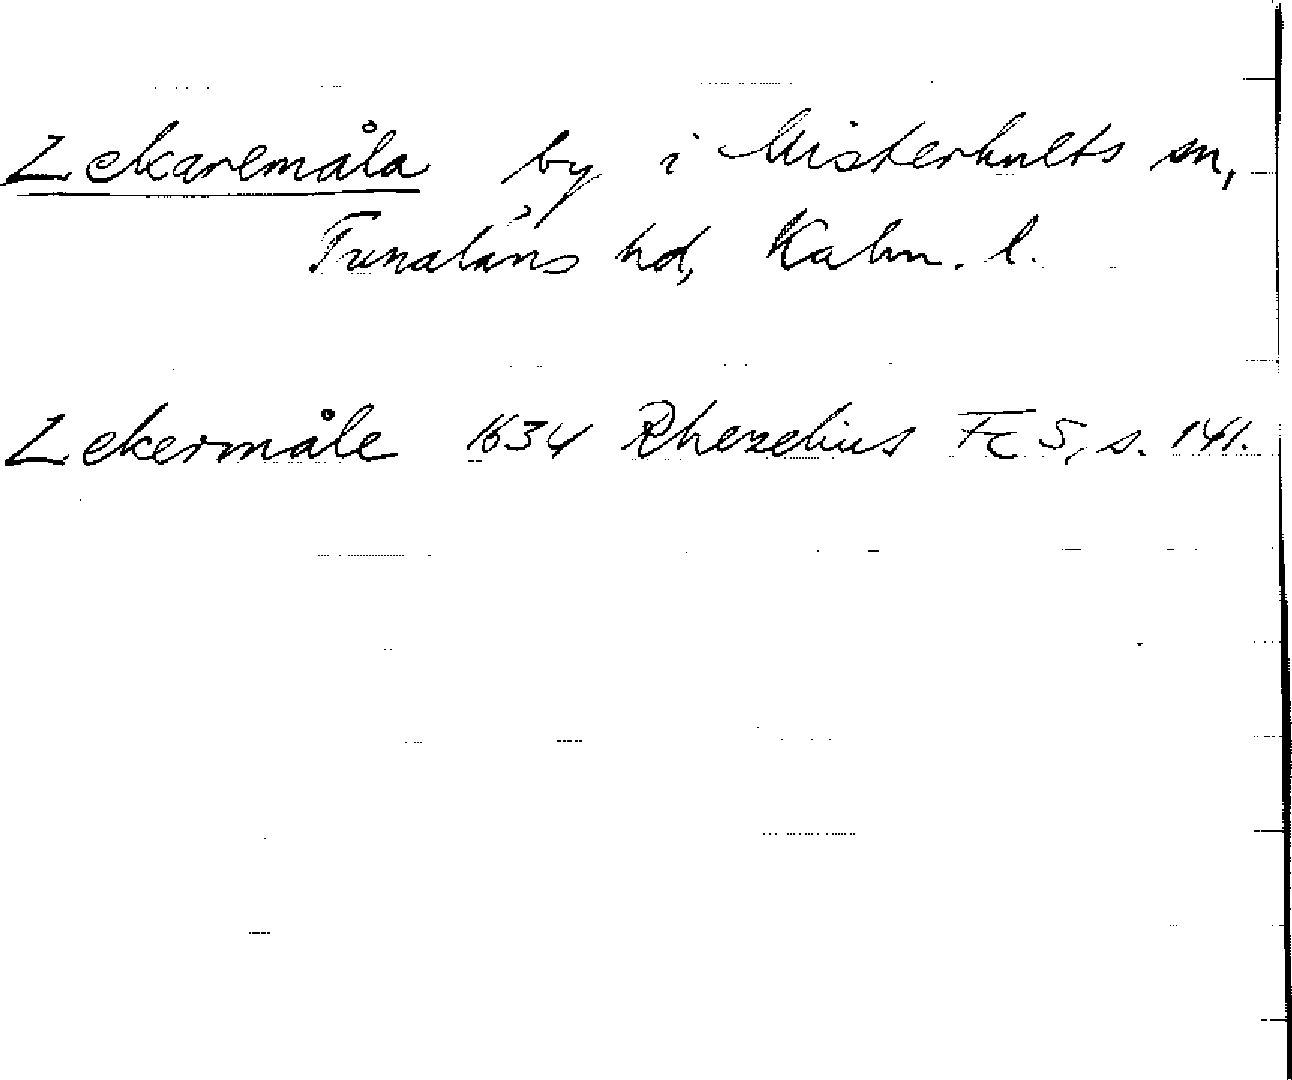 Lekaremåla by i Misterhults sn,
Tunaläns hd, Kalm. l.
Lekermåle 1634 Rhezelius Fc 5, s. 141.